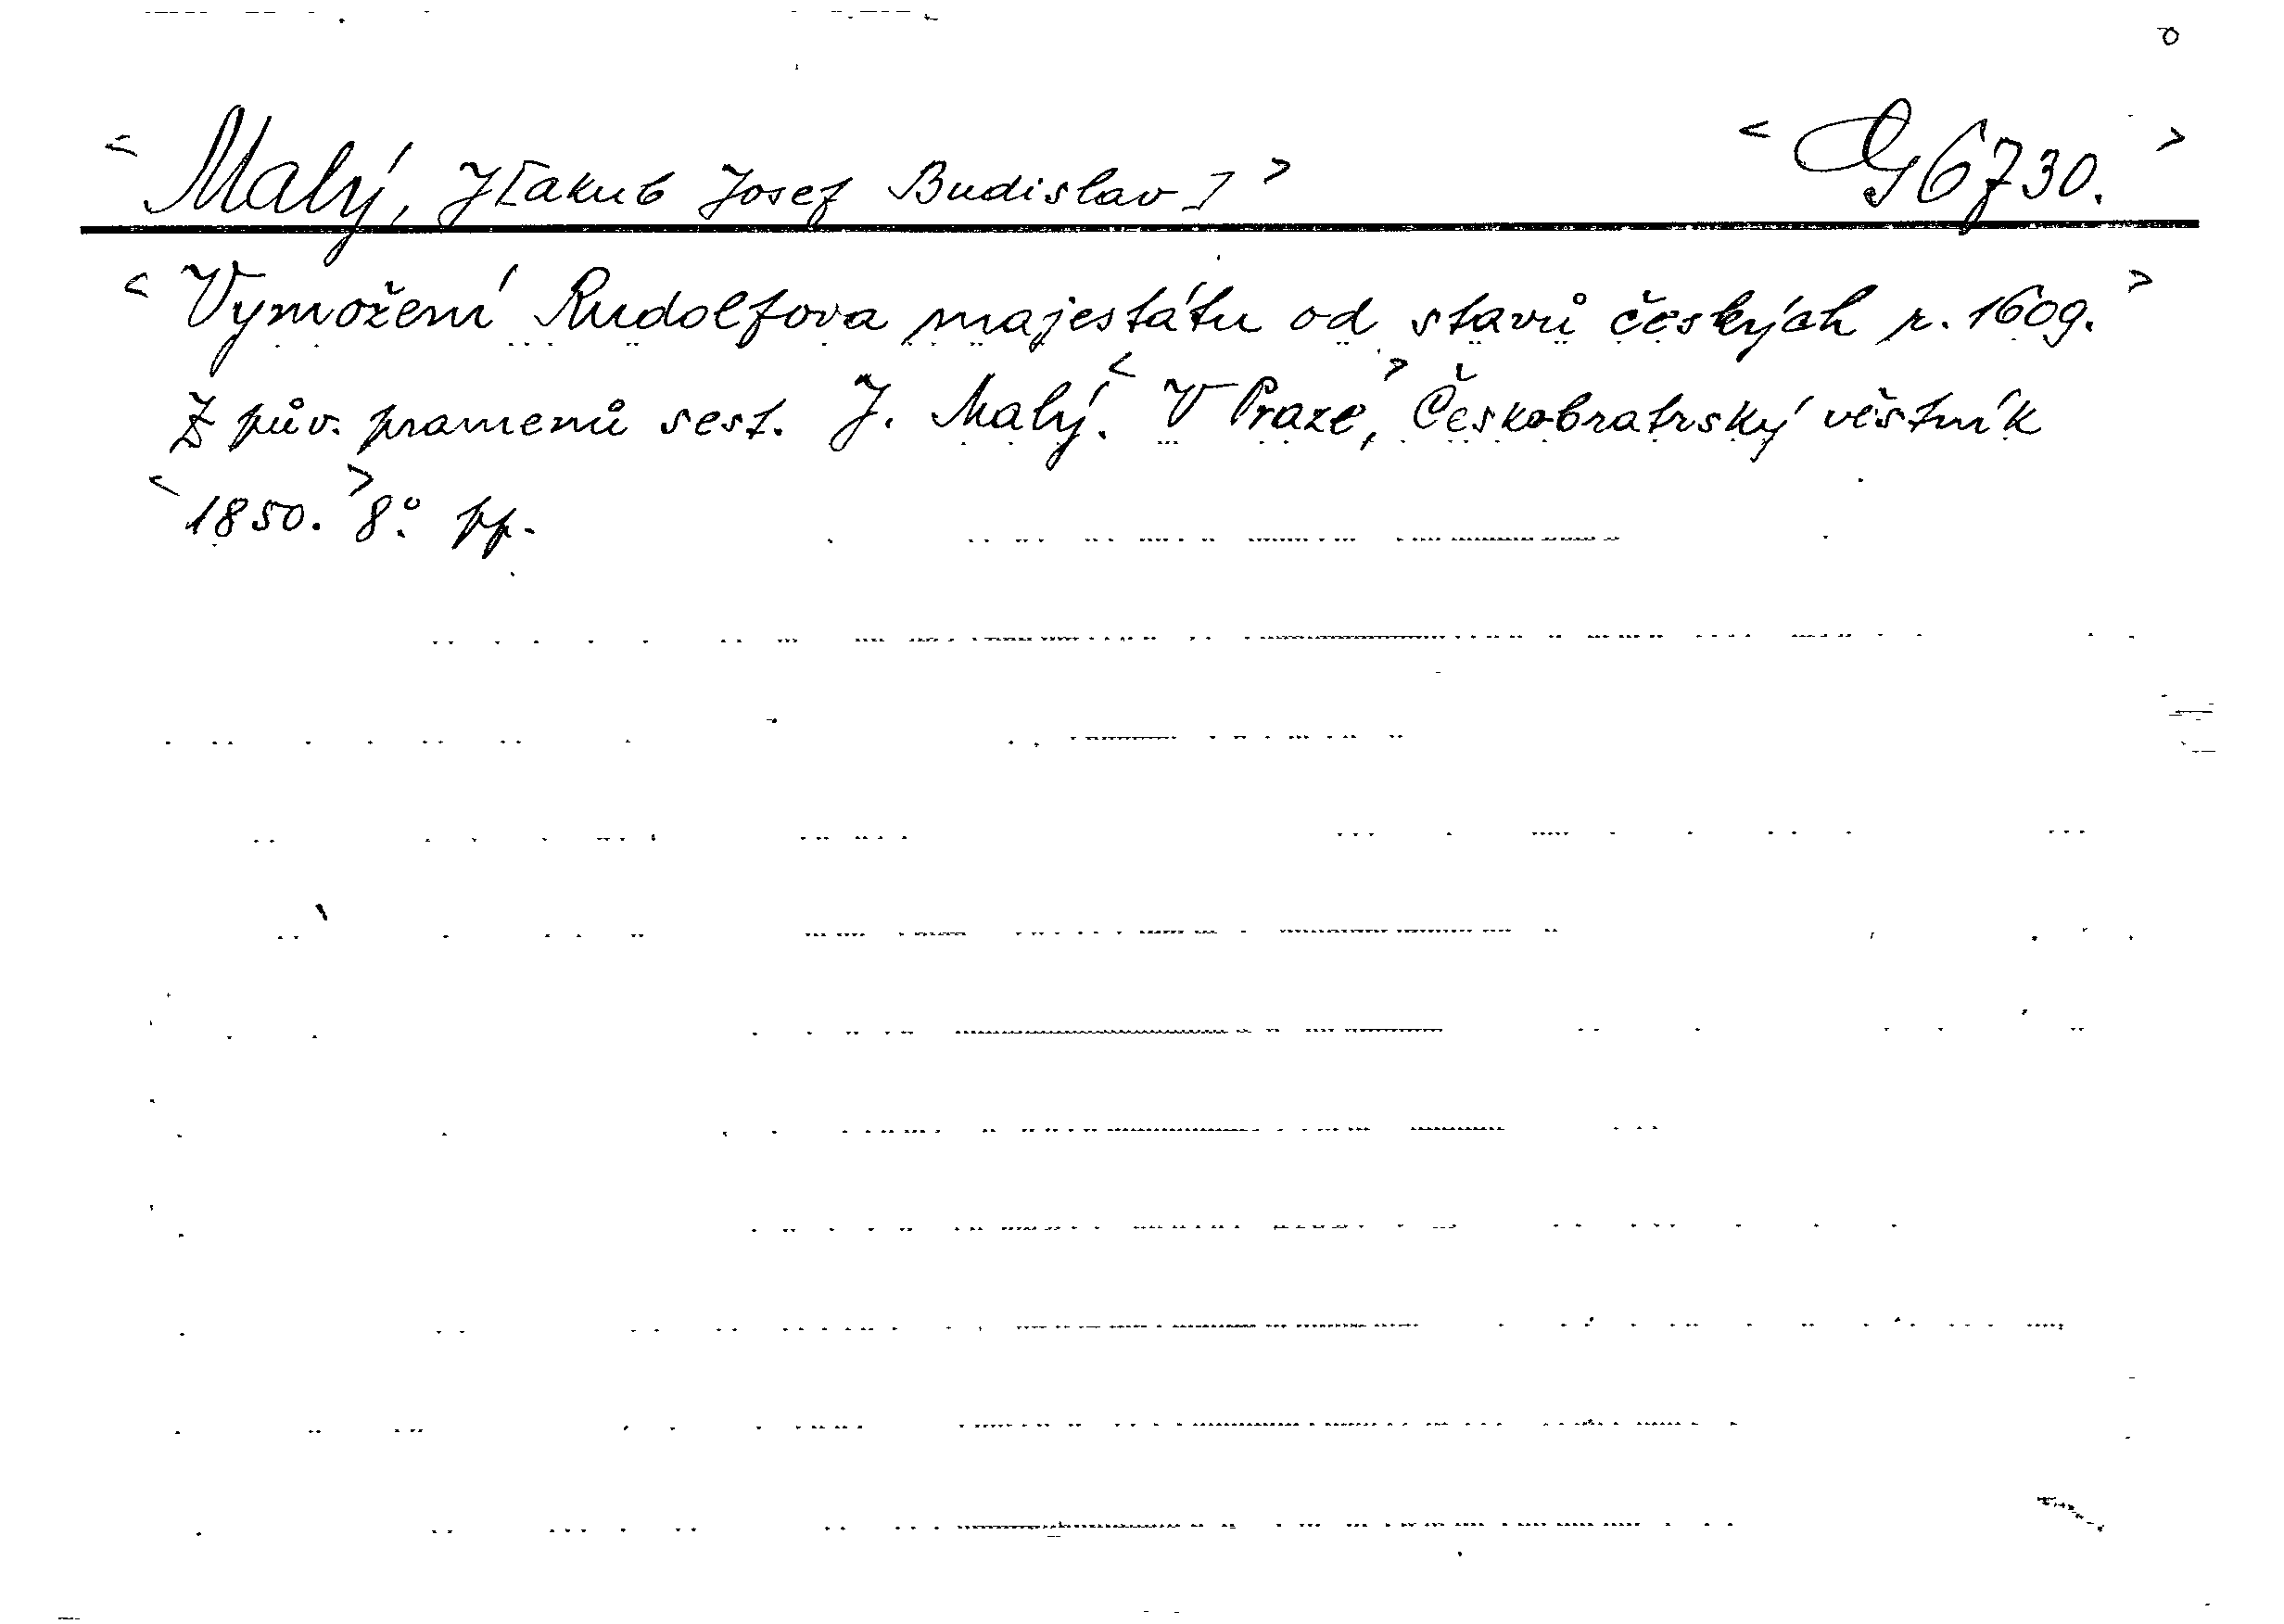 <Malý, J[akub Josef Budislav]> <G 6730.>
<Vymožení Rudolfova majestátu od stavů českých r. 1609.>
Z pův. pramenů sest. J. Malý. <V Praze,> Českobratrský věstník
<1850.> 8°. pp.